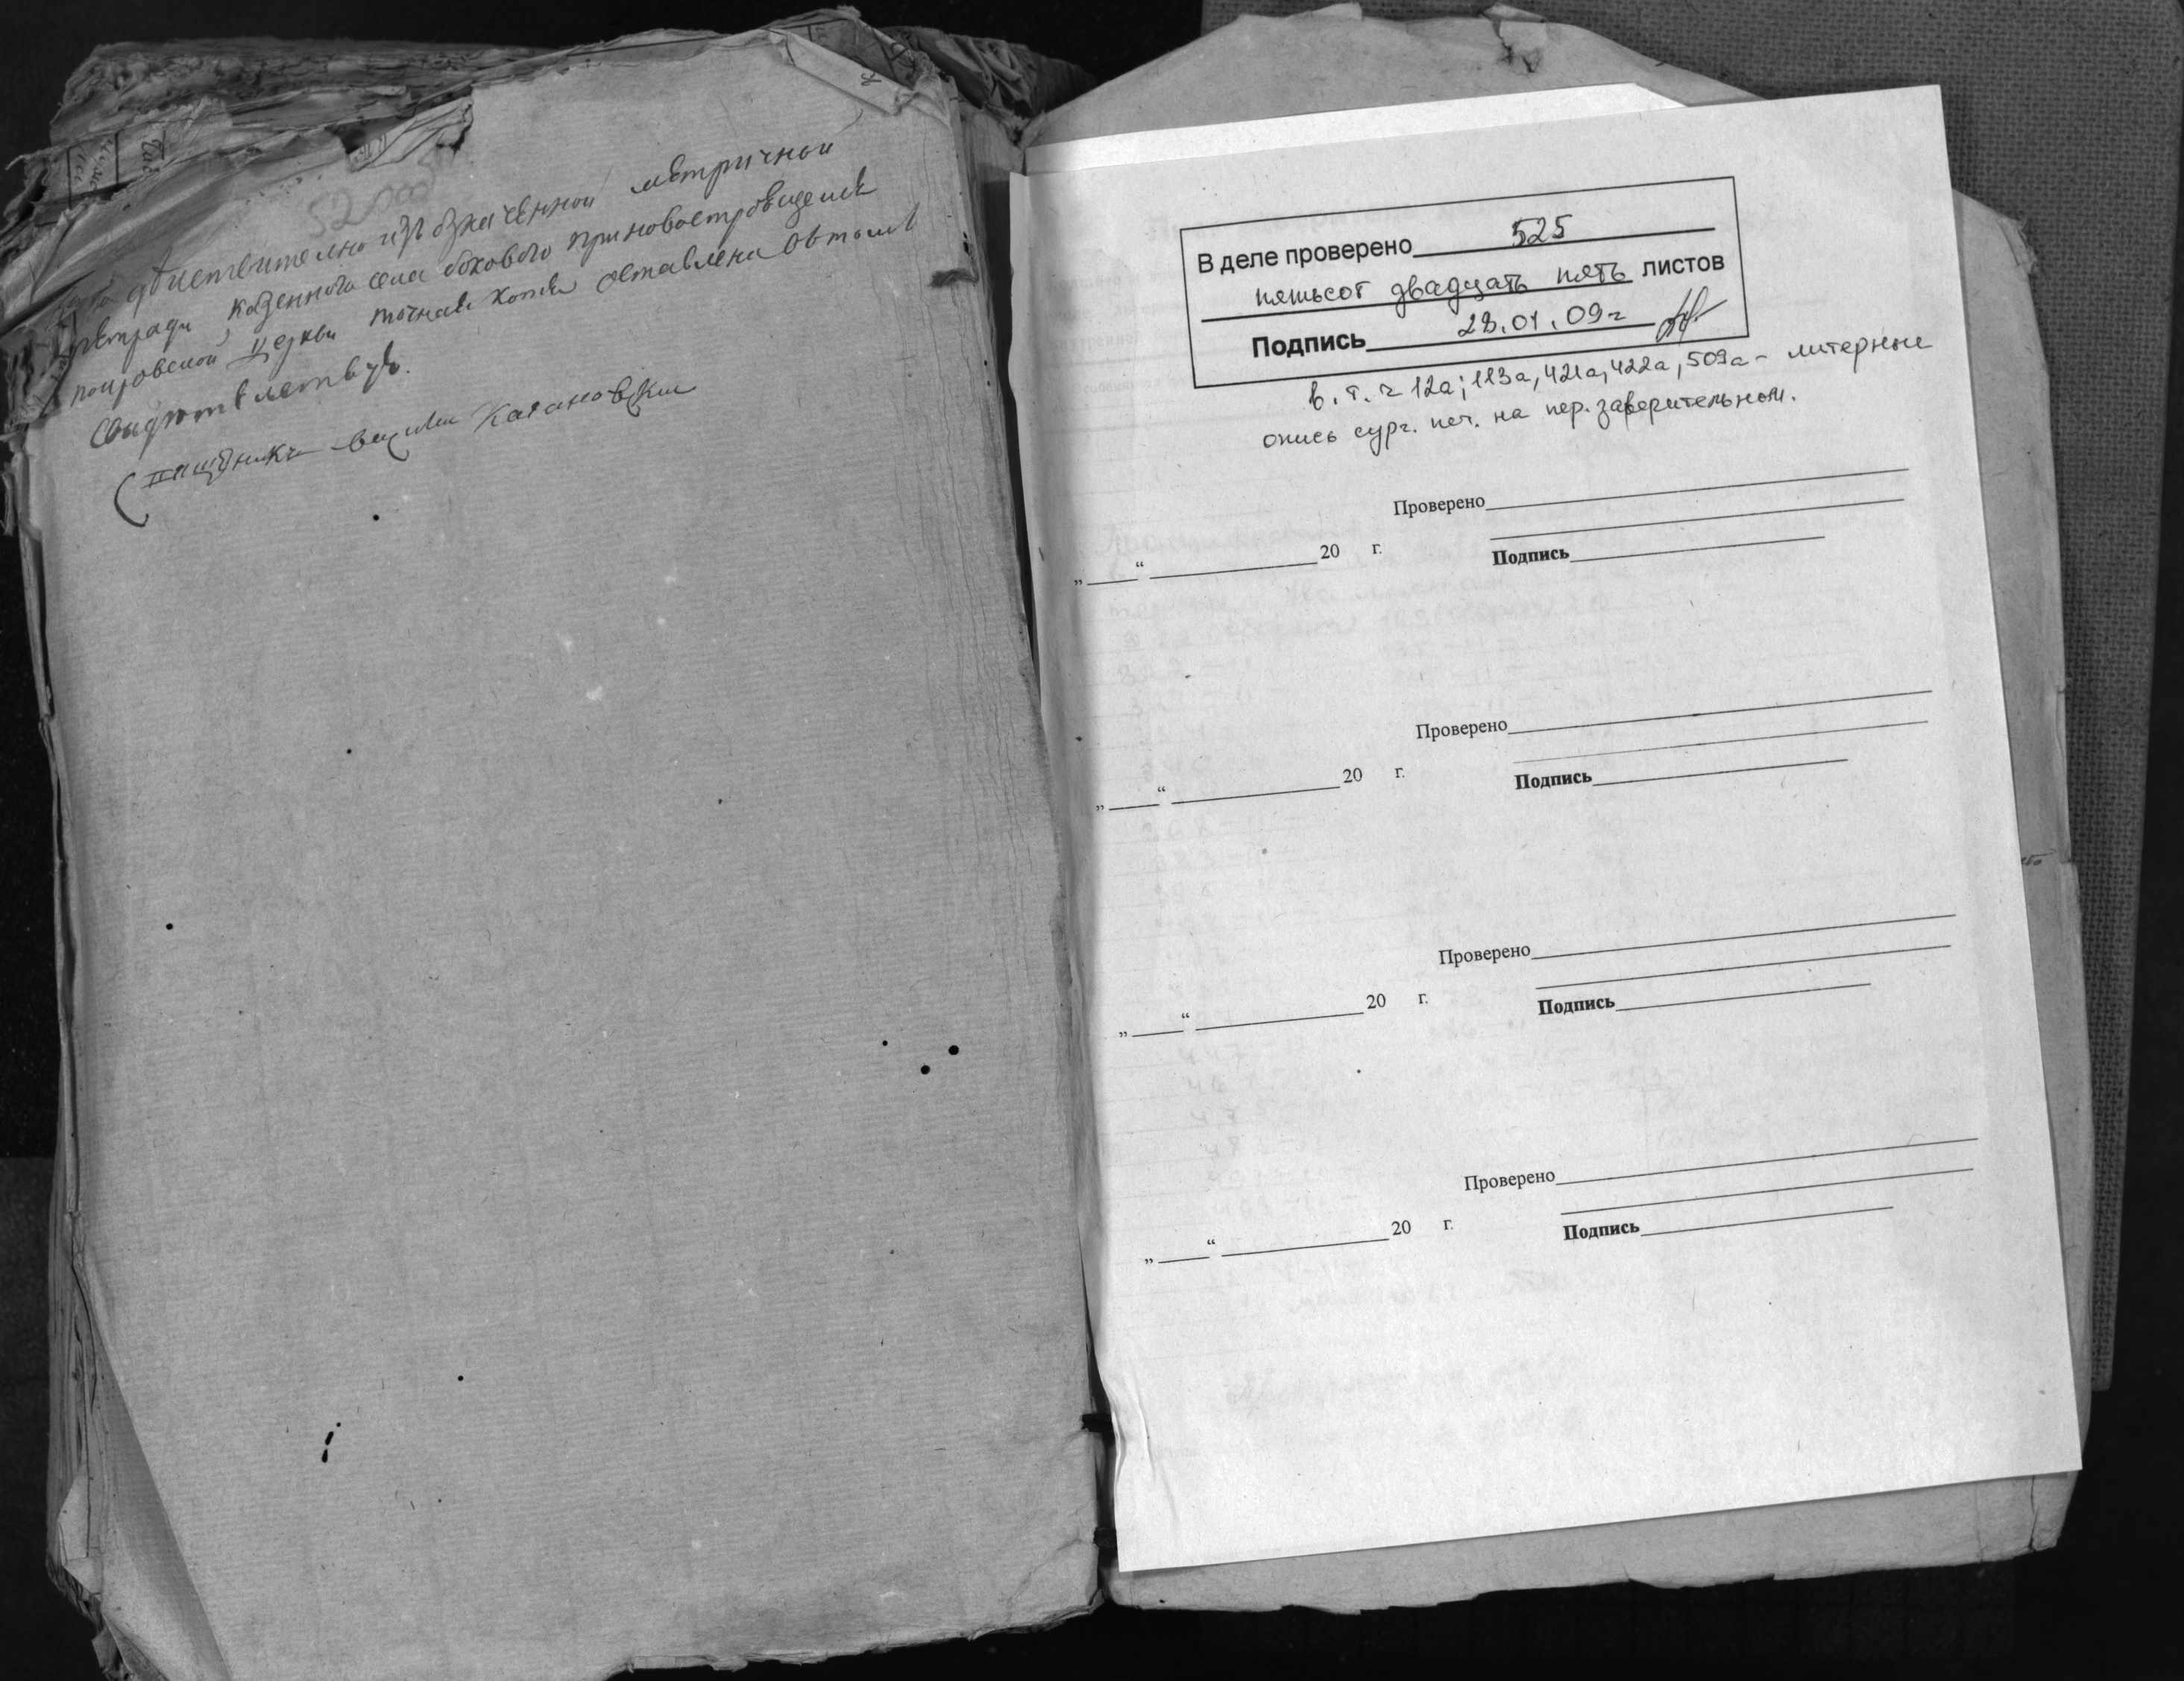 520об
действително изъ означенной метричной
тетради казенного села бокового при новоотстроевшейся
покровской церкви точная копия оставлена Втомъ
свидѣтелствую.
Священникъ василий Кагановский
В деле проверено 525
пятьсот двадцать пять листов
Подпись 28.01.09г
в. т. ч 12а; 113а, 421а, 422а, 509а - литерные
опись сург. печ. на пер. заверительном.
Проверено
„ “ 20 г.
Подпись
Проверено
„ “ 20 г.
Подпись
Проверено
„ “ 20 г.
Подпись
Проверено
„ “ 20 г.
Подпись